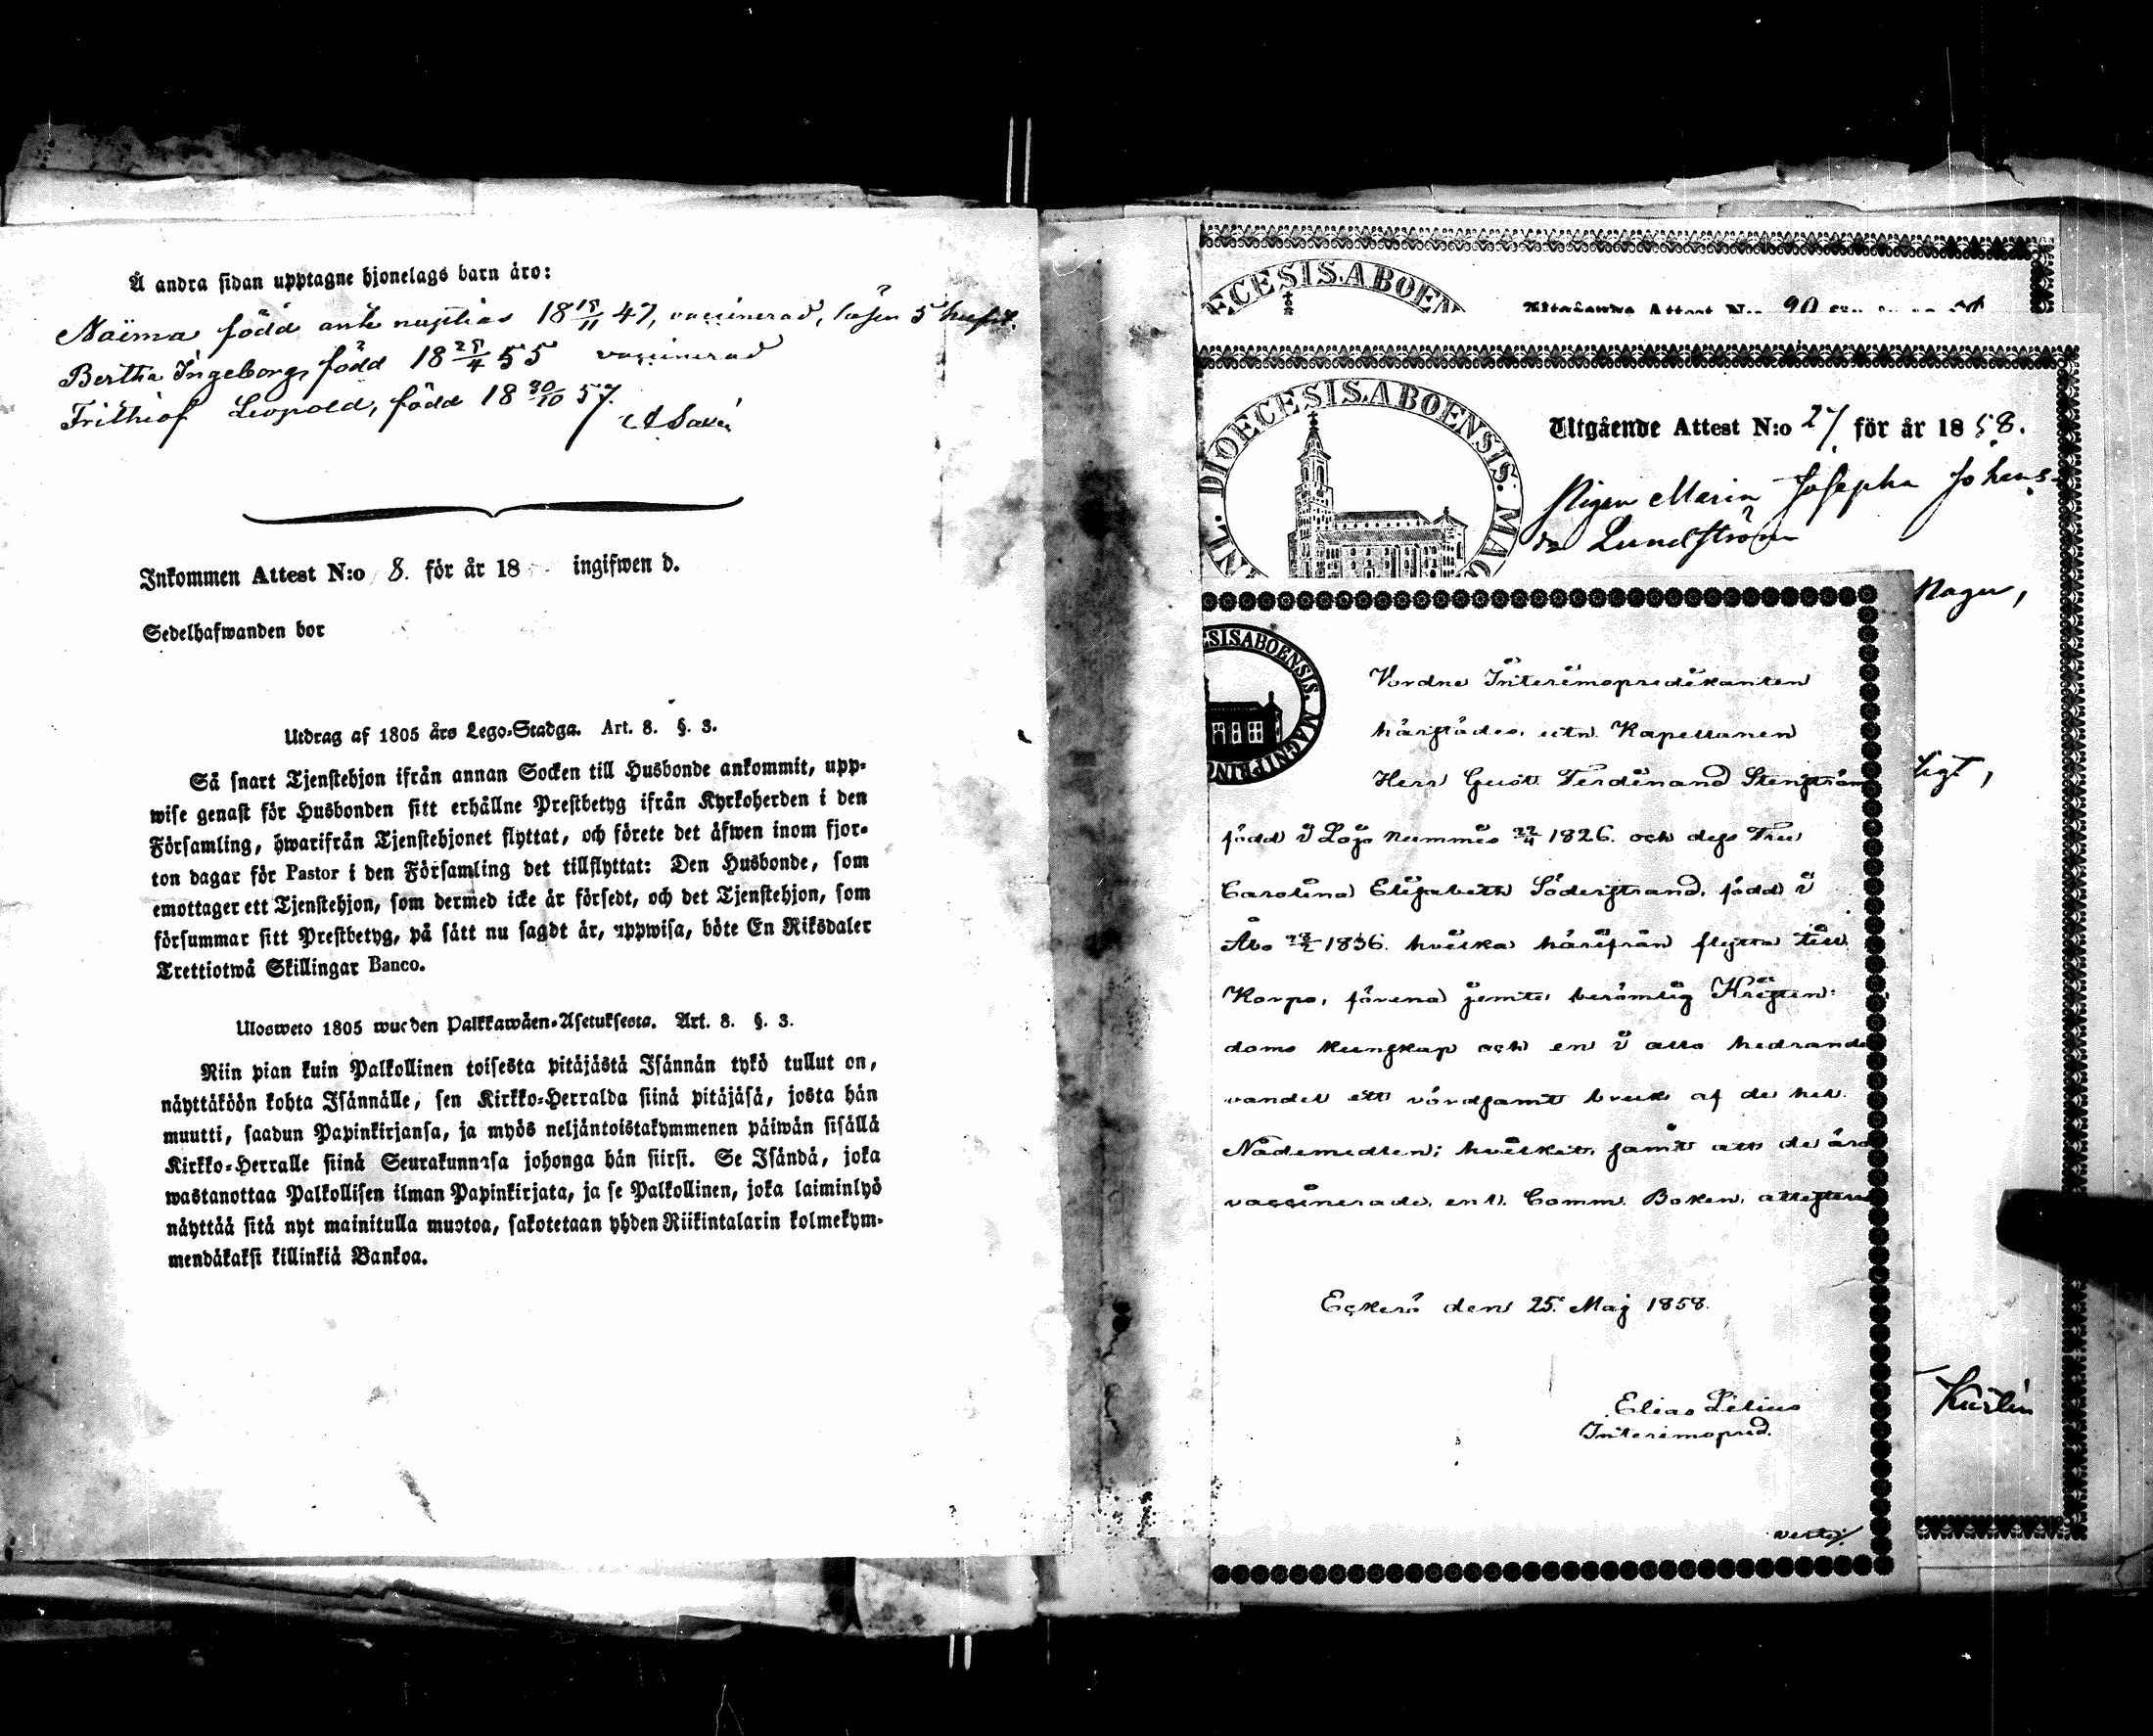 Å andra sidan upptagne hjonelags barn äro:
Naïma född ante nuptias 18 15/11 47, vaccinerad, läser 5 hufst.
Bertha Ingeborg, född 18 25/4 55 vaccinerad
Frithiof Leopold, född 18 30/10 57.
Inkommen Attest N:o 8. för år 18 ingifwen d.
Sedelhafwanden bor
Utdrag af 1805 års Lego-Stadga. Art. 8. §. 3.
Så snart Tjenstehjon ifrån annan Socken till Husbonde ankommit, upp-
wise genast för Husbonden sitt erhållne Prestbetyg ifrån Kyrkoherden i den
Församling, hwarifrån Tjenstehjonet flyttat, och förete det äfwen inom fjor-
ton dagar för Pastor i den Församling det tillflyttat: Den Husbonde, som
emottager ett Tjenstehjon, som dermed icke är försedt, och det Tjenstehjon, som
försummar sitt Prestbetyg, på sätt nu sagdt är, uppwisa, böte En Riksdaler
Trettiotwå Skillingar Banco.
Ulosweto 1805 wuoden Palkkawäen-Asetuksesta. Art. 8. §. 3.
Niin pian kuin Palkollinen toisesta pitäjästä Isännän tykö tullut on,
näyttäköön kohta Isännälle, sen Kirkko-Herralda siinä pitäjäsä, josta hän
muutti, saadun Papinkirjansa, ja myös neljäntoistakymmenen päiwän sisällä
Kirkko-Herralle siinä Seurakunnasa johonga hän siirsi. Se Isändä, joka
wastanottaa Palkollisen ilman Papinkirjata, ja se Palkollinen, joka laiminlyö
näyttää sitä nyt mainitulla muotoa, sakotetaan yhden Riikintalarin kolmekym-
mendäkaksi killinkiä Bankoa.
ECESIS.ABOEN
Utgående Attest N:o 20 för år 18
L. DIOECESIS.ABOENSIS. MAG
Utgående Attest N:o 27 för år 18 58.
Pigan Maria Josepha Johans-
Lundström
ESISABOENSIS. MAGNIPRINC
Vordne Interimspredikanten
härstädes, utn. Kapellanen
Herr Gust. Ferdinand Stenström
född i Lojo Nummis 22/4 1826. och dess Fru
Carolina Elisabeth Söderstrand, född i
Åbo 1836. hvilka härifrån flytta till
Korpo, förena jemte berömlig Kristen-
doms kunskap och en i allo hedrande
vandel ett vördsamt bruk af de hel.
Nådemedlen; hvilket, samt att de äro
vaccinerade, enl. Comm. Boken, attesterar
Eckerö den 25. Maj 1858.
Elias Lilius
Interimspred.
verte/.